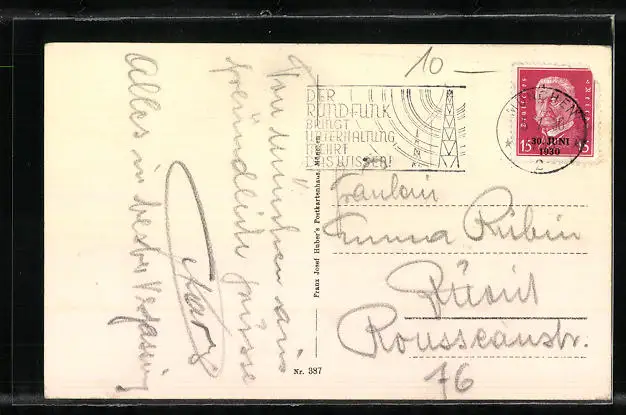 10 —
DER
RUNDFUNK
BRINGT
UNTERHALTUNG
MEHRT
DAS WISSEN!
MÜNCHEN
2
Deutsches Reich
15 15
30. JUNI
1930
Fräulein
Emma Rubin
Zürich
Rousseaustr.
76
freundliche Grüsse
Alles in bester Verfassung
Franz Josef Huber's Postkartenhaus, München
Nr. 387